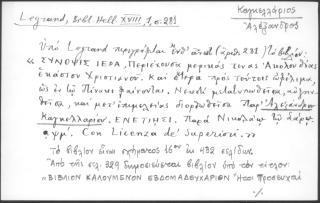 Legrand, Bibl Hell XVIII, 1, σ. 281
Καγκελλάριος
Ἀλέξανδρος
Ὑπὸ Legrand περιγράφεται ὑπ' ἀριθ. 281 Τὸ βιβλίον:
"ΣΥΝΟΨΙΣ ΙΕΡΑ, Περιέχουσα μερικάς τινας Ἀκολουθίας
ἑκάστου Χριστιανοῦ. Καὶ ἕτερα πρὸς τούτοις ὠφέλιμα,
ὡς ἐν τῷ Πίνακι φαίνονται. Νεωστὶ μετατυπωθεῖσα,
καὶ μετ' ἐπιμελείας διορθωθεῖσα Παρ' Ἀλεξάνδρου
Καγκελλαρίου. ΕΝΕΤΙΗΣΙ. Παρὰ Νικολάῳ τῷ Σάρῳ.
Con Licenza de' Superiori."
Τὸ βιβλίον εἶναι σχήματος 16ου ἐκ 432 σελίδων.
Ἀπὸ τῆς σελ. 329 δημοσιεύεται βιβλίον ὑπὸ τὸν τίτλον:
"ΒΙΒΛΙΟΝ ΚΑΛΟΥΜΕΝΟΝ ΕΒΔΟΜΑΔΕΥΧΑΡΙΟΝ Ἤτοι Προσευχαὶ
./.